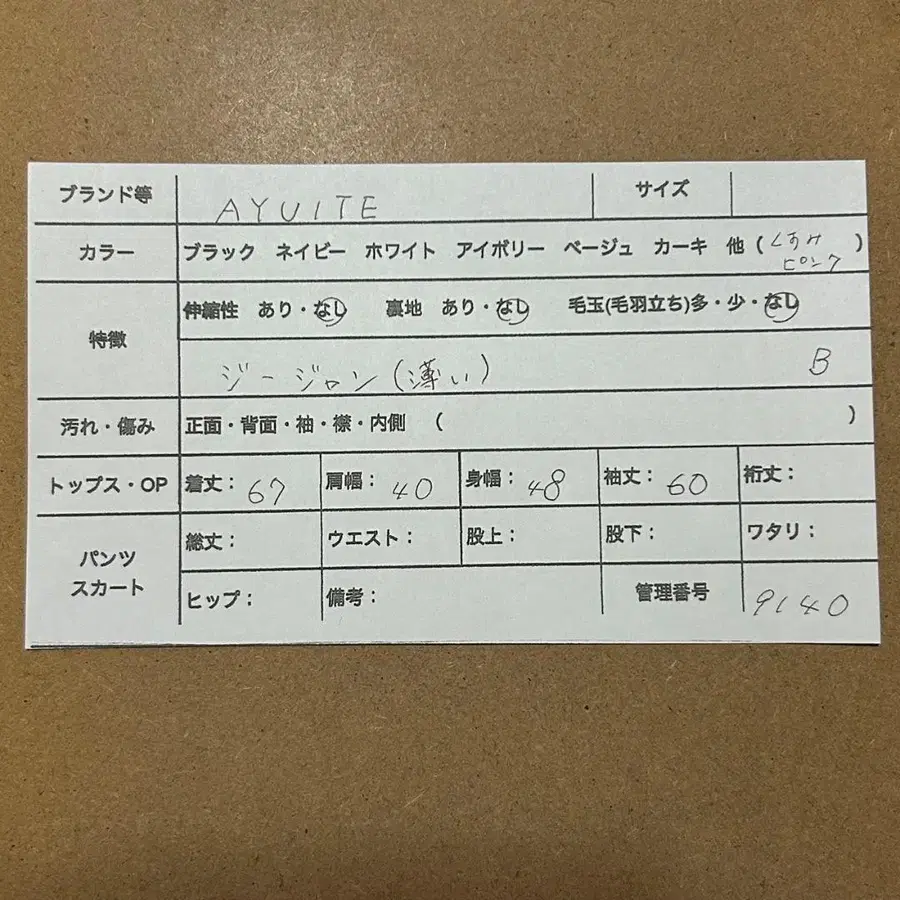 ブランド等 AYUITE サイズ
カラー ブラック ネイビー ホワイト アイボリー ベージュ カーキ 他 (くすみピンク)
特徴 伸縮性 あり・なし 裏地 あり・なし 毛玉(毛羽立ち)多・少・なし
ジージャン(薄い) B
汚れ・傷み 正面・背面・袖・襟・内側 ( )
トップス・OP 着丈: 67 肩幅: 40 身幅: 48 袖丈: 60 裄丈:
パンツ スカート 総丈: ウエスト: 股上: 股下: ワタリ:
ヒップ: 備考: 管理番号 9140